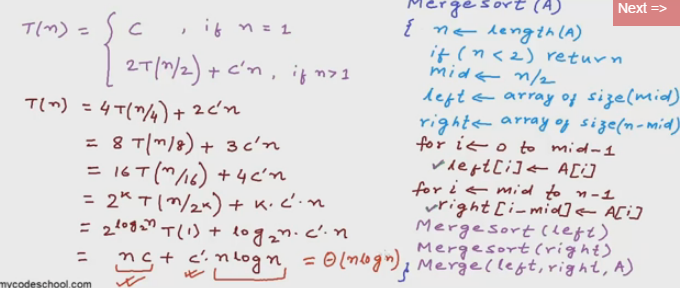 T(n) = { C , if n = 1
2T(n/2) + c'n , if n>1
T(n) = 4T(n/4) + 2c'n
= 8T(n/8) + 3c'n
= 16T(n/16) + 4c'n
= 2^k T(n/2^k) + k.c'.n
= 2^log₂n T(1) + log₂n.c'.n
= nc + c'.nlogn = Θ(nlogn)
mycodeschool.com
Next =>
Mergesort(A)
{ n ← length(A)
if (n<2) return
mid ← n/2
left ← array of size(mid)
right ← array of size(n-mid)
for i ← 0 to mid-1
✓left[i] ← A[i]
for i ← mid to n-1
✓right[i-mid] ← A[i]
Mergesort(left)
Mergesort(right)
} Merge(left, right, A)